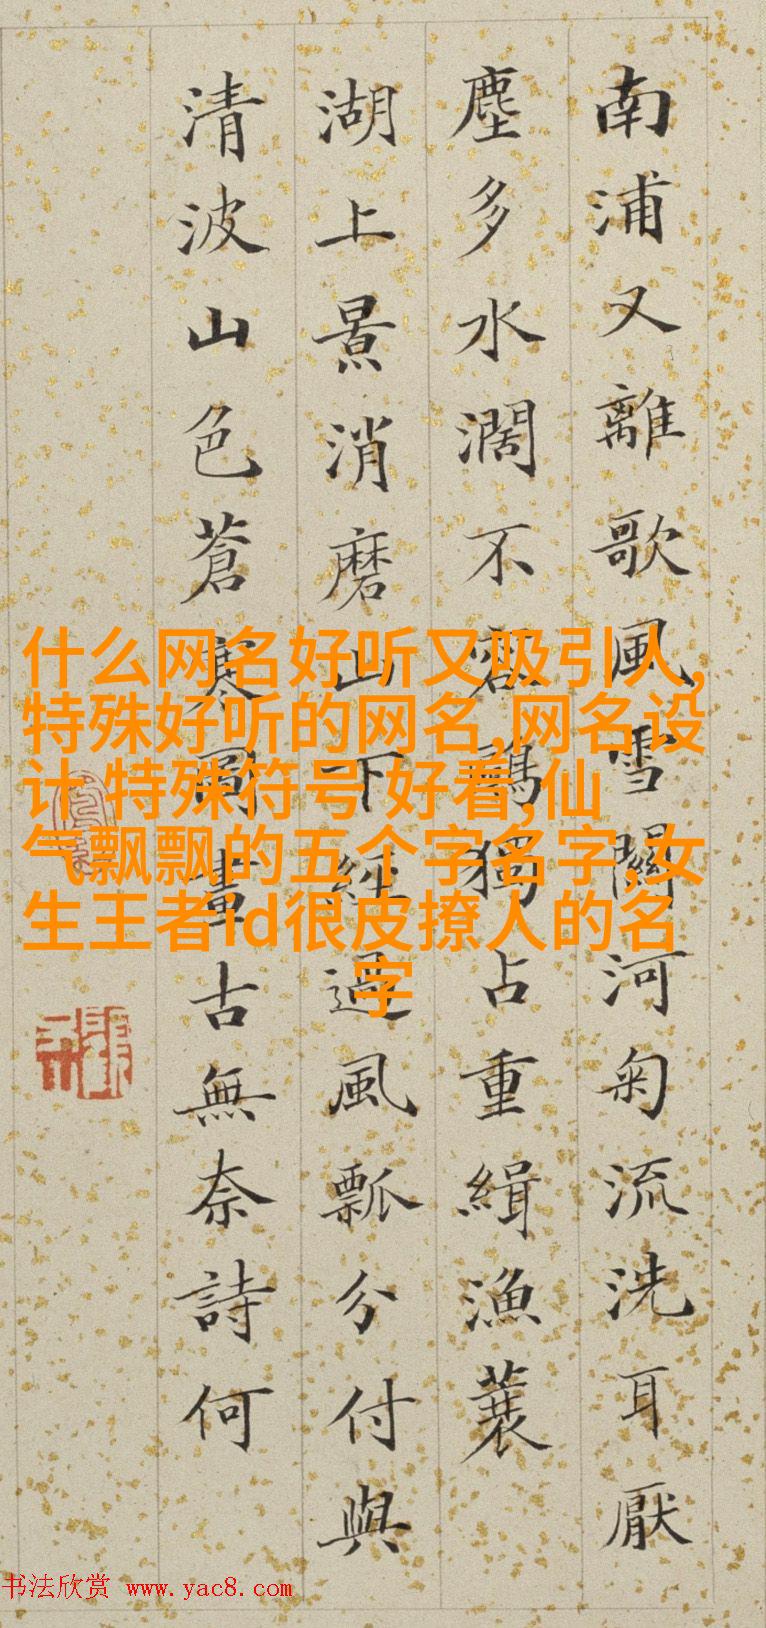 南浦又離歌風雪關河匊流洗耳厭
塵多水濶不容鷗獨占重緝漁蓑
湖上景消磨山下經過風瓢分付與
清波山色蒼寒圖畫古無奈詩何
什么网名好听又吸引人,
特殊好听的网名,网名设
计 特殊符号 好看,仙
气飘飘的五个字名字,女
生王者id很皮撩人的名
字
书法欣赏 www.yac8.com